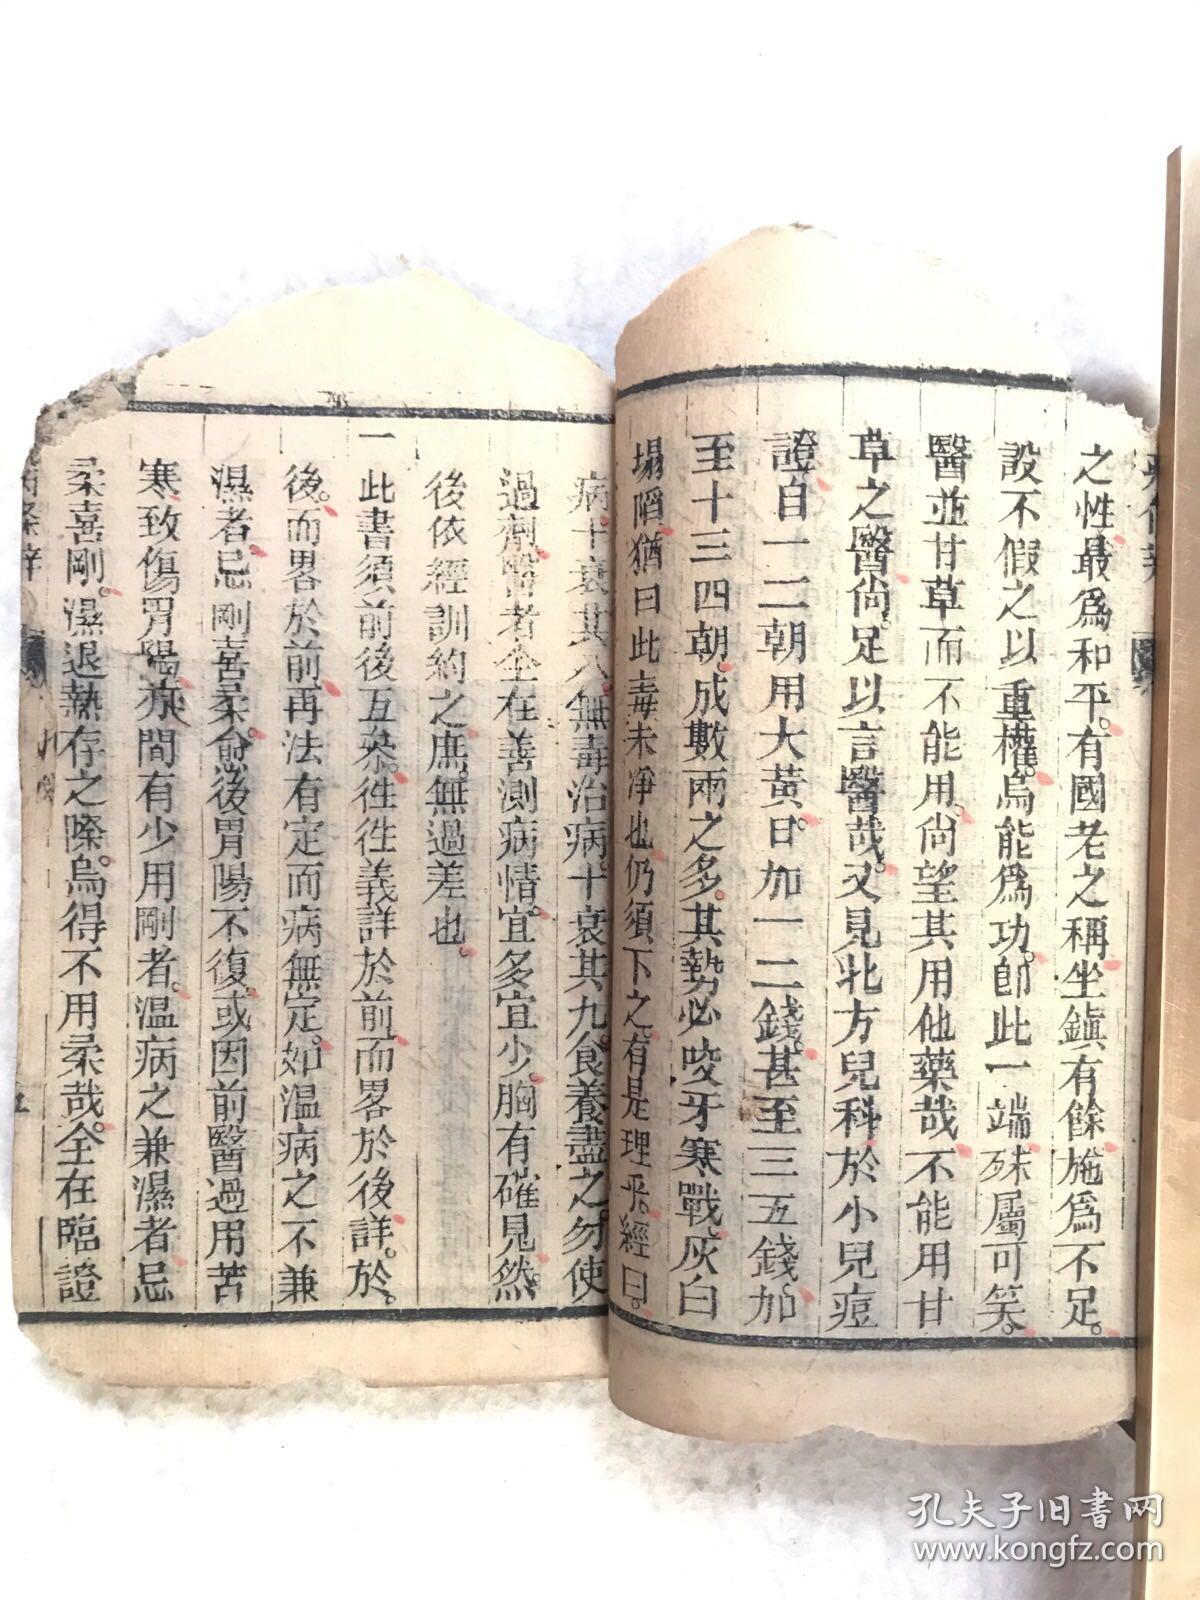 之性最爲和平。有國老之稱坐鎭有餘施爲不足。
設不假之以重權。烏能爲功。卽此一端殊屬可笑。
醫並甘草而不能用。尙望其用他藥哉不能用甘
草之醫尙足以言醫哉。又見北方兒科於小兒痘
證自一二朝用大黃。日加一二錢。甚至三五錢加
至十三四朝。成數兩之多。其勢必咬牙寒戰。灰白
塌陷猶曰此毒未凈也仍須下之。有是理乎。經曰。
病。十衰其八。無毒治病。十衰其九。食養盡之。勿使
過劑。醫者全在善測病情。宜多宜少。胸有確見。然
後依經訓約之。庶無過差也。
一此書須前後互叅。徃徃義詳於前而畧於後。詳。於。
後。而畧於前。再法有定而病無定。如溫病之不兼
濕者。忌剛喜柔。愈後胃陽不復。或因前醫過用苦
寒。致傷胃陽。亦間有少用剛者。溫病之兼濕者。忌
柔喜剛。濕退熱存之際。烏得不用柔哉。全在臨證
孔夫子旧书网
www.kongfz.com